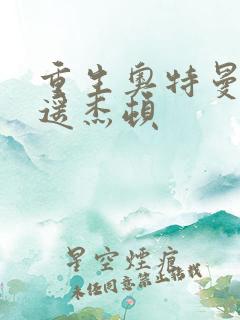 重生奥特曼
遥杰顿
星空煙痕
未经同意禁止搭栈